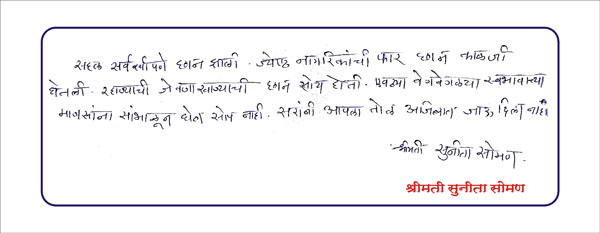 सहल सर्वस्वीपणे छान झाली. ज्येष्ठ नागरिकांची फार छान काळजी
घेतली. रहाण्याची जेवणाखाण्याची छान सोय होती. एवढ्या वेगवेगळ्या स्वभावाच्या
माणसांना सांभाळून घेणं सोपं नाही. सरांनी आपला तोल अजिबात जाऊ दिला नाही
श्रीमती सुनीता सोमण.
श्रीमती सुनीता सोमण